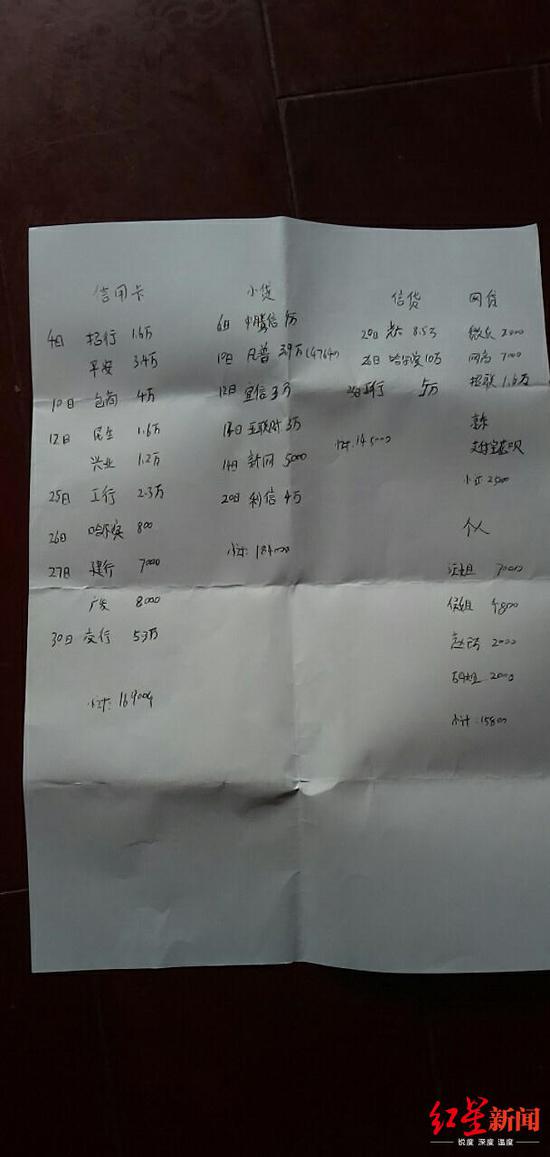 信用卡
4日 招行 1.6万
平安 3.4万
10日 包商 4万
12日 民生 1.6万
兴业 1.2万
25日 工行 2.3万
26日 哈尔滨 800
27日 建行 7000
广发 8000
30日 交行 5.3万
小计: 169000
小贷
6日 中腾信
10日 凡普 3.9万 (4764)
12日 宜信 3万
14日 互联财 3万
14日 新网 5000
20日 利信 4万
小计: 184000
信贷
20日 8.5万
26日 哈尔滨 10万
5万
小计: 145000
网贷
微众 2000
7000
招联 1.6万
京东
支付宝
小计 25000
个人
汪姐 7000
侯姐 4800
赵 2000
2000
小计: 15800
红星新闻
锐度 深度 温度